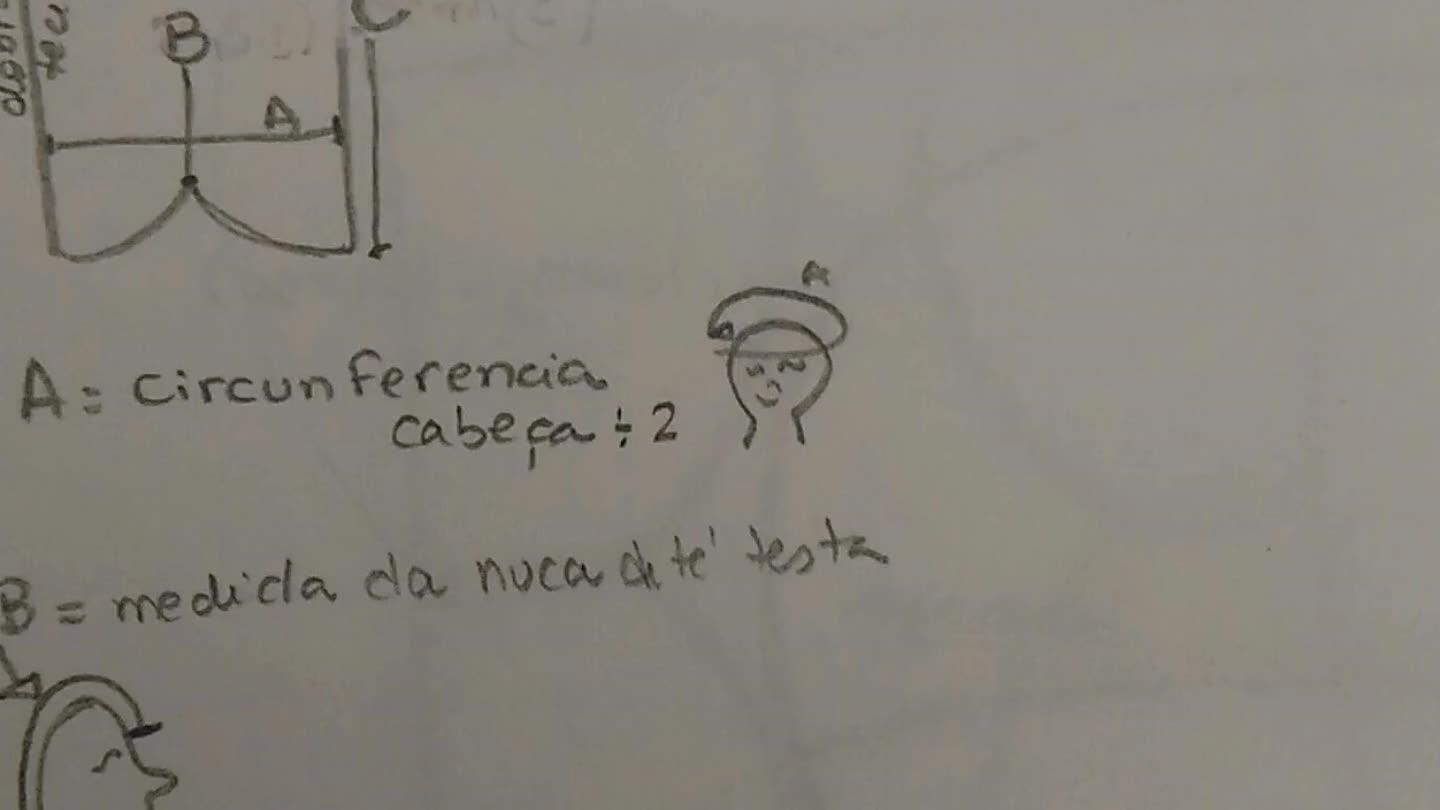 B
A
A = circunferencia
cabeça ÷ 2
A
B = medida da nuca até testa